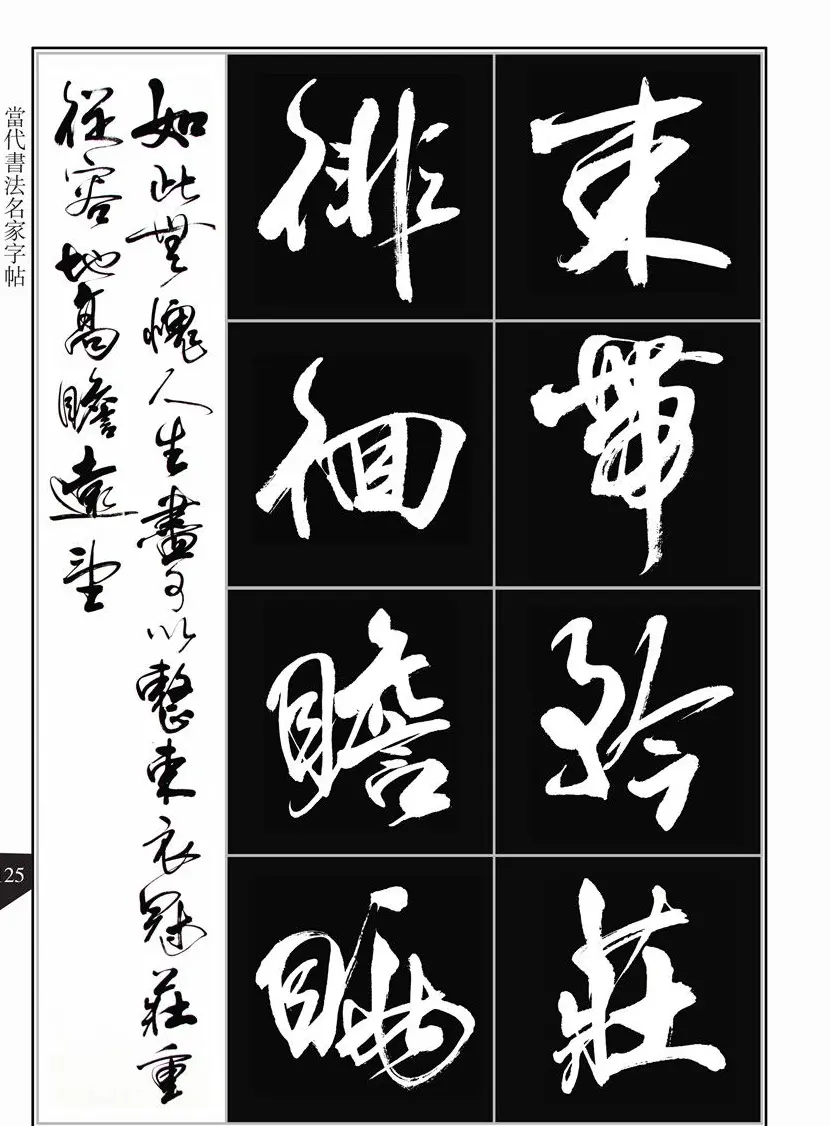 束帶矜莊
徘徊瞻眺
如此無愧人生盡可以整束衣冠莊重
從容地高瞻遠望
當代書法名家字帖
125